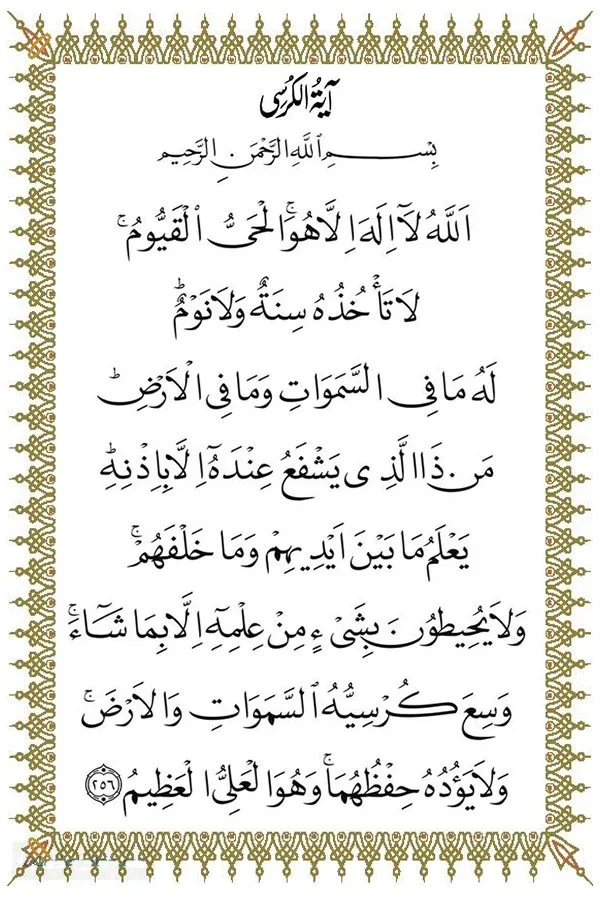 آيَةُ الكُرْسِى
بِسْـــــمِ ٱللَّهِ الرَّحْمَنِ الرَّحِيمِ
اَللَّهُ لَآ اِلَهَ اِلَّا هُوَۚ الْحَىُّ ٱلْقَيُّومُۚ
لَا تَأْخُذُهُ سِنَةٌ وَلَا نَوْمٌؕ
لَهُ مَا فِى السَّمَوَاتِ وَمَا فِى الْاَرْضِؕ
مَن ذَا الَّذِى يَشْفَعُ عِنْدَهُٓ اِلَّا بِاِذْنِهِؕ
يَعْلَمُ مَا بَيْنَ اَيْدِيهِمْ وَمَا خَلْفَهُمْۚ
وَلَا يُحِيطُونَ بِشَىْءٍ مِنْ عِلْمِهِٓ اِلَّا بِمَا شَآءَۚ
وَسِعَ كُرْسِيُّهُ ٱلسَّمَوَاتِ وَالْاَرْضَۚ
وَلَا يَؤُدُهُ حِفْظُهُمَاۚ وَهُوَ الْعَلِىُّ الْعَظِيمُ ﴿٢٥٦﴾